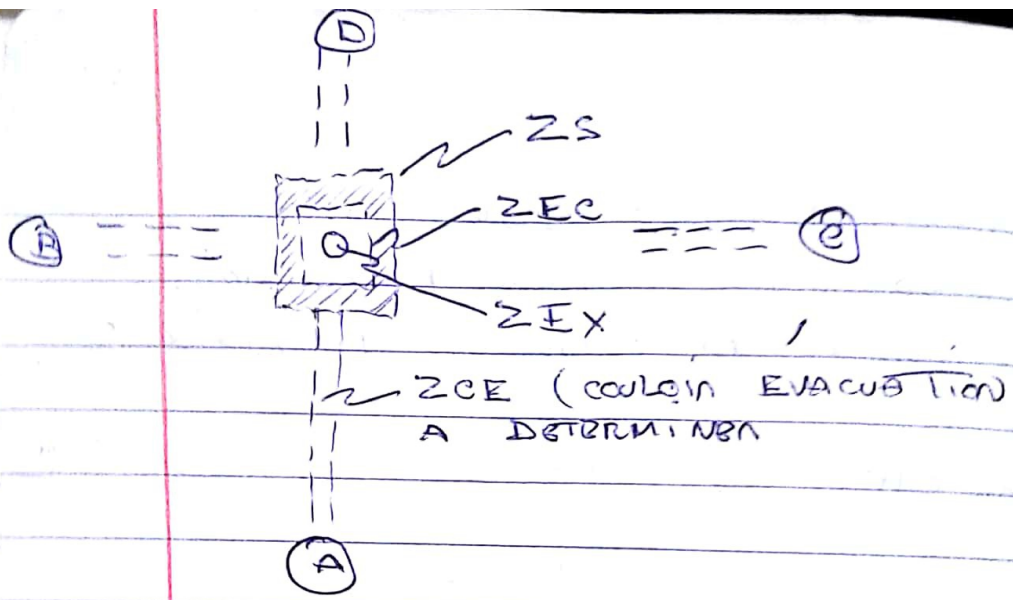 D
ZS
ZEC
B
C
ZEX
ZCE (COULOIR EVACUATION
A DETERMINER
A